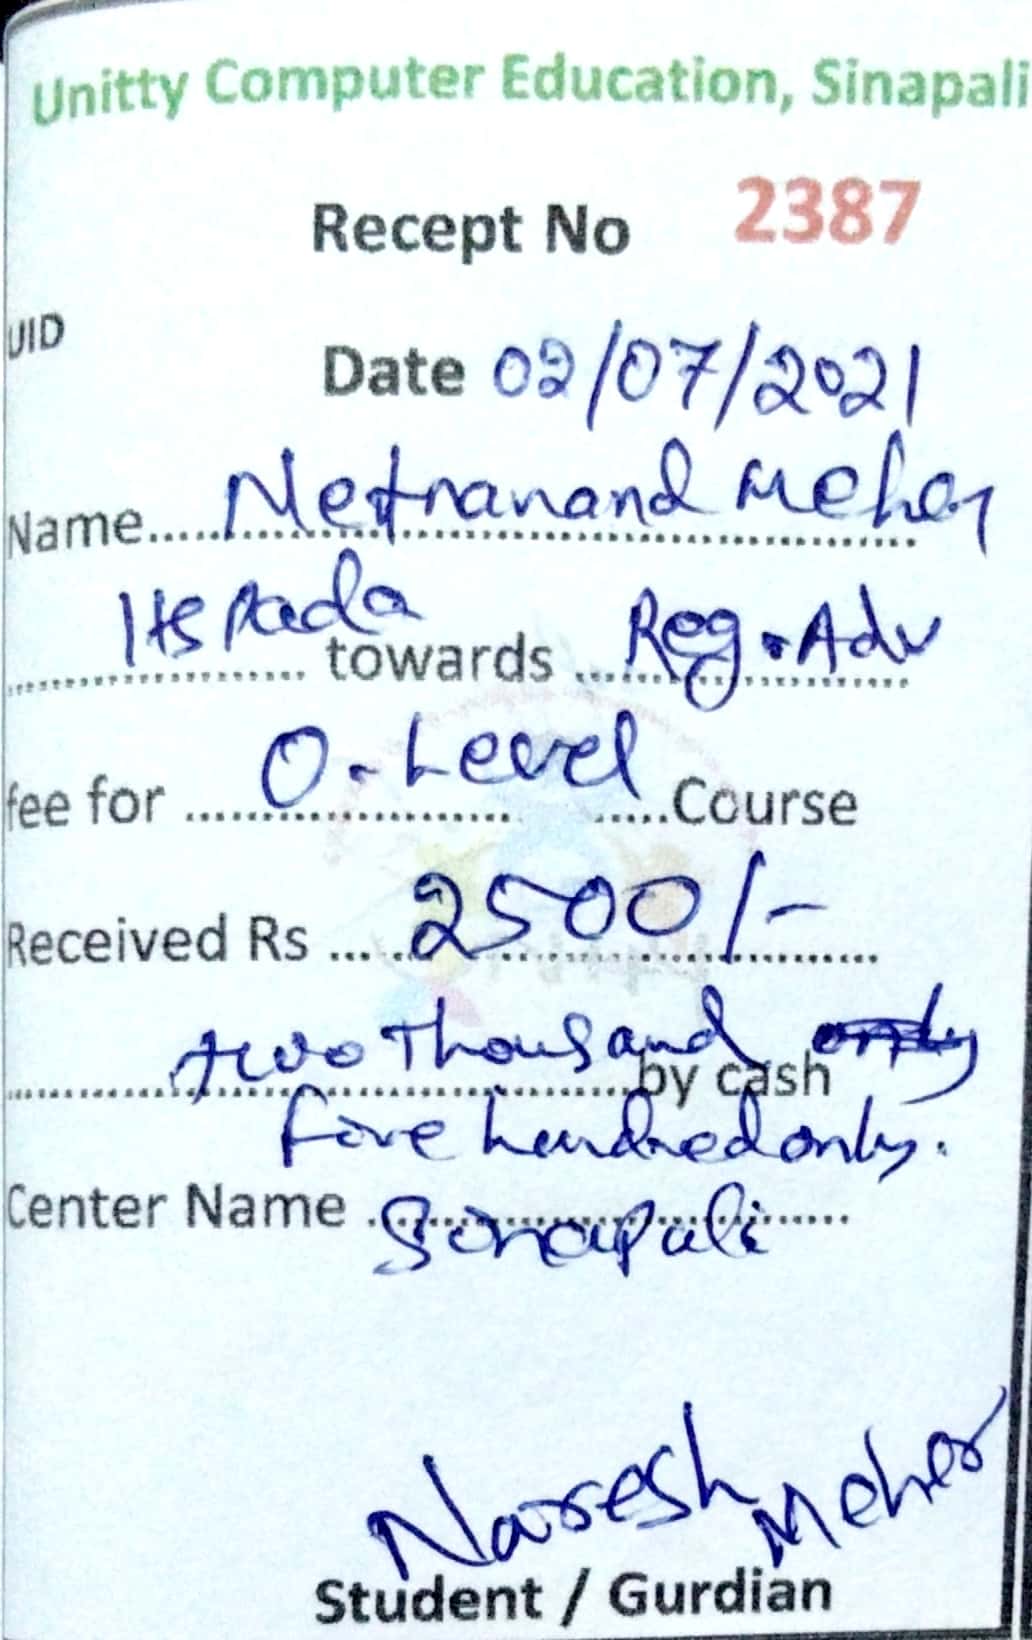 Unitty Computer Education, Sinapali
Recept No 2387
UID
Date 02/07/2021
Name..... Netranand Meher
towards ... Reg. Adv
fee for ..... O-Level .....Course
Received Rs ..... 2500/-
two thousand only by cash
five hundred only.
Center Name ... Sinapali
Naresh Meher
Student / Gurdian